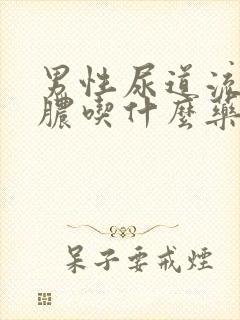 男性尿道流
膿喫什麼藥
呆子要戒煙